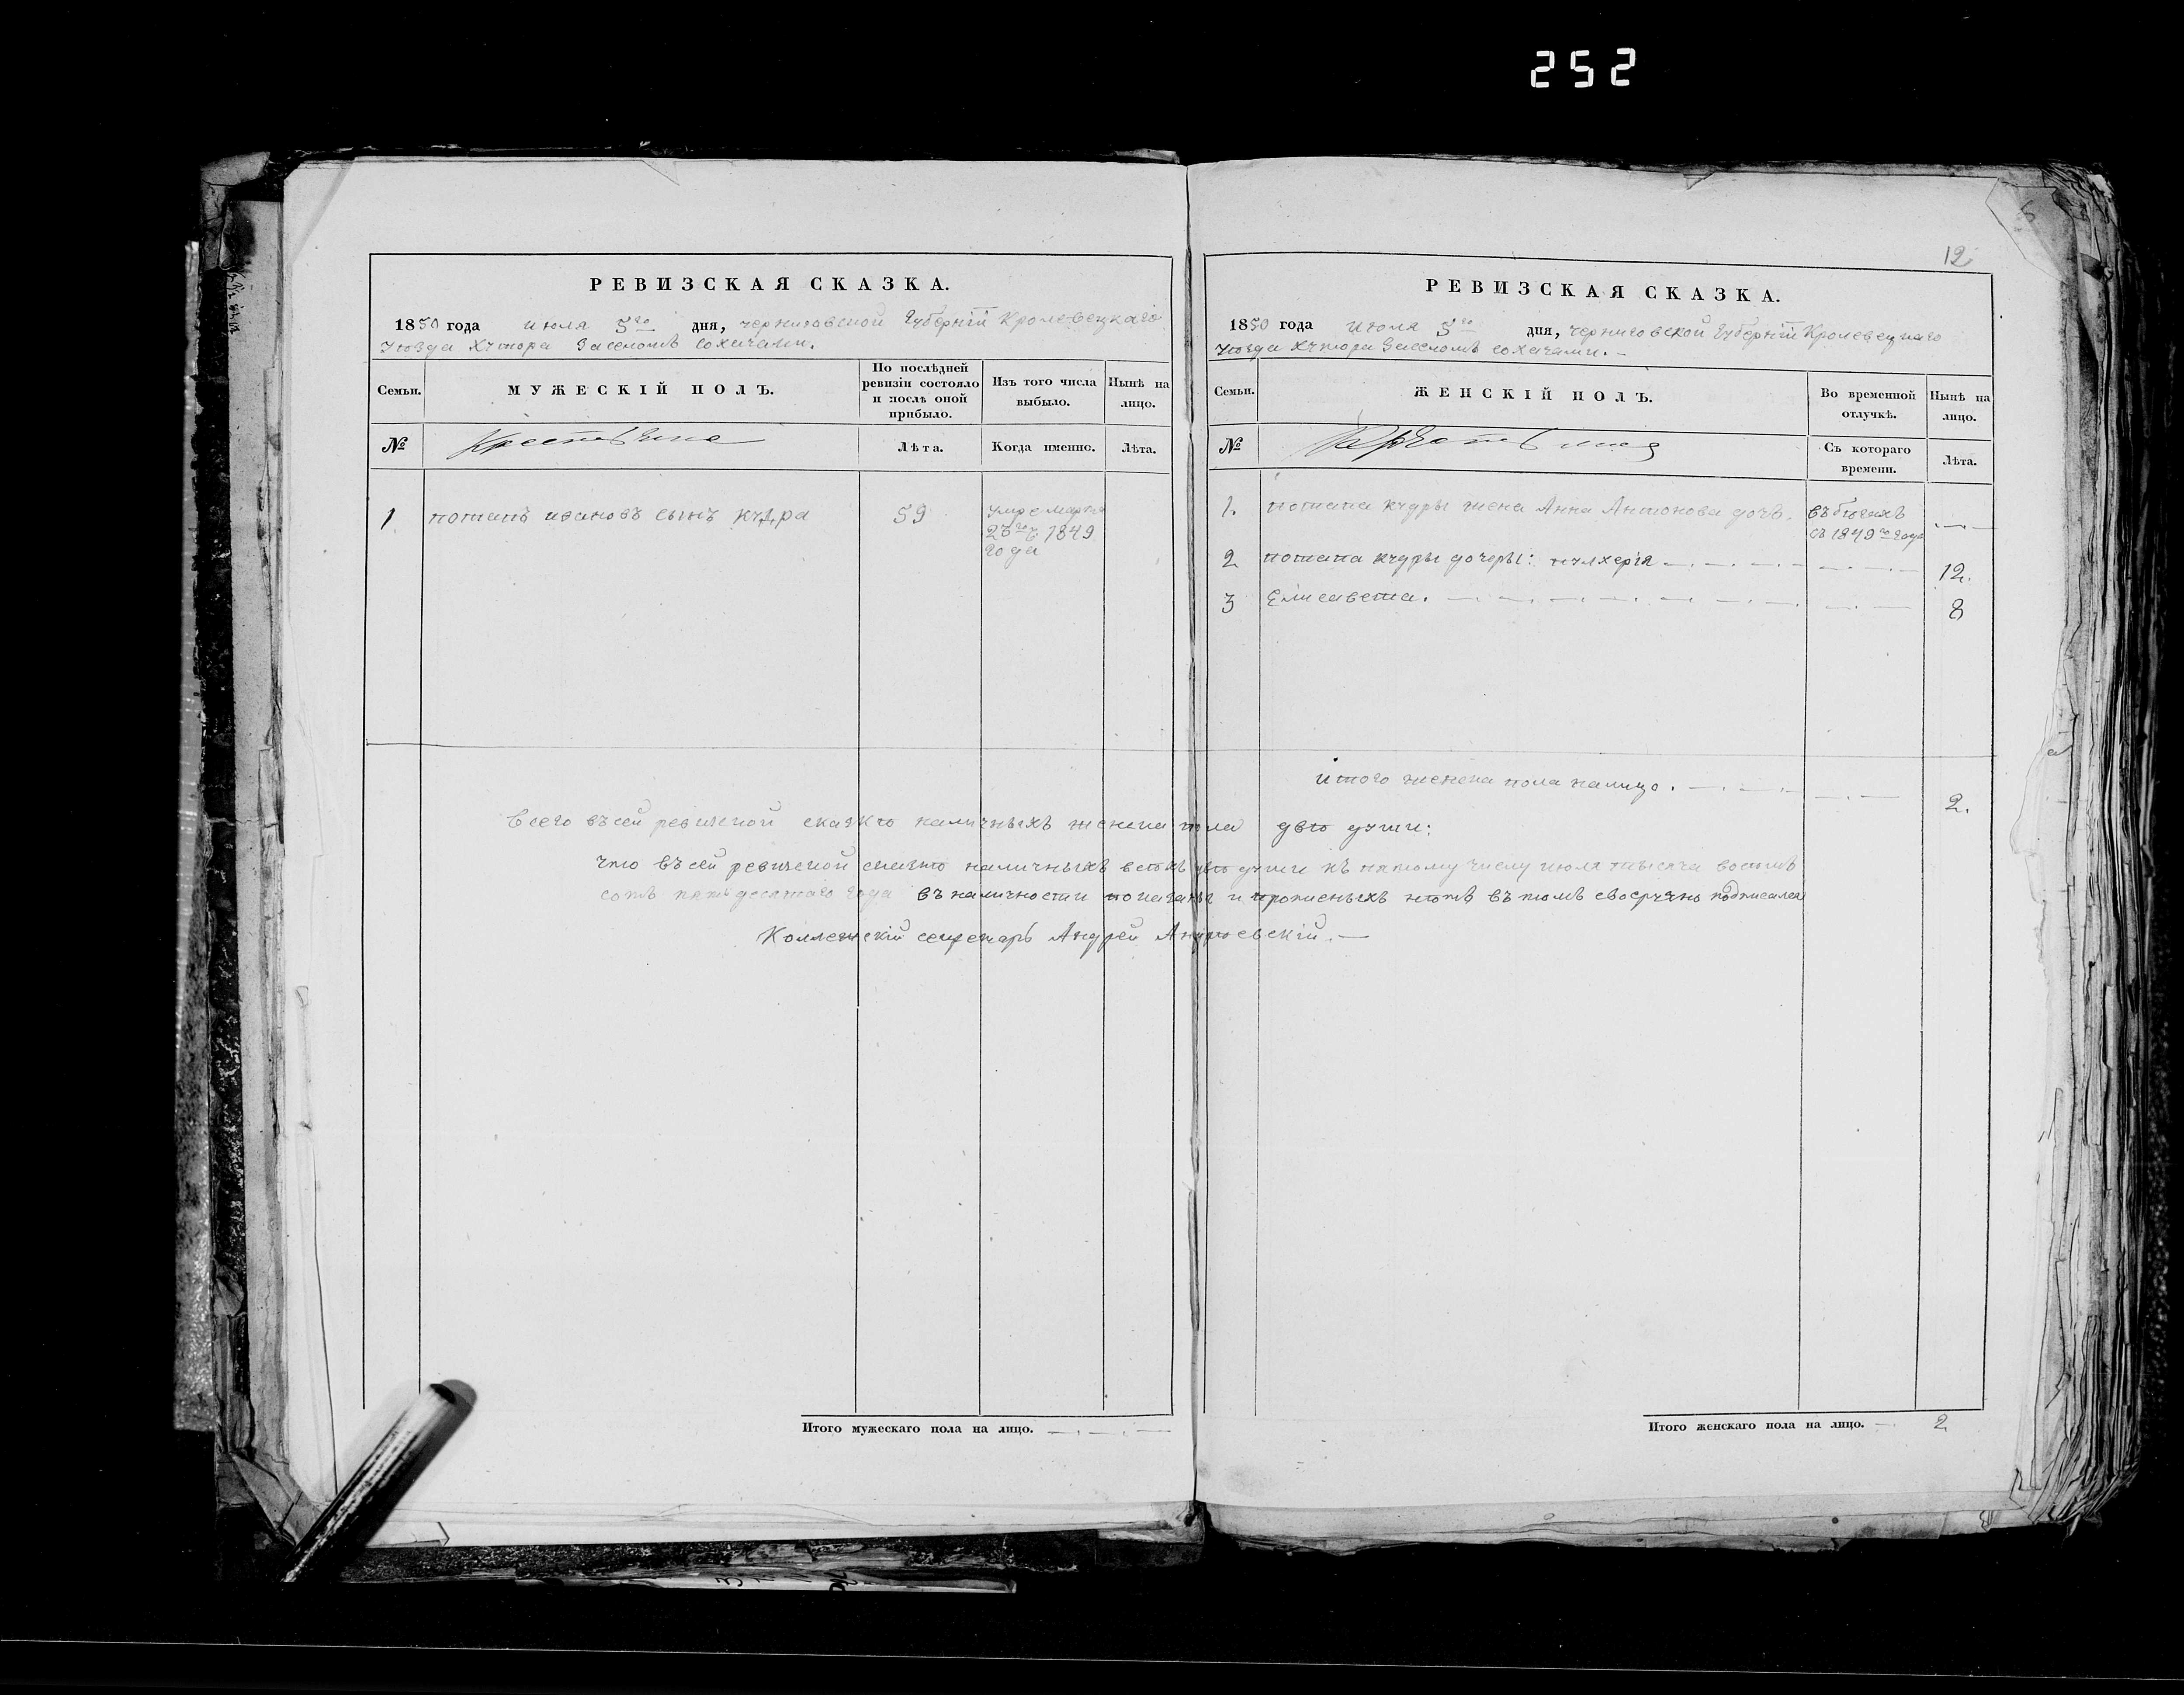 252
12
РЕВИЗСКАЯ СКАЗКА.
1850 года июля 5го дня, черниговской Губерніи Кролевецкаго
Уѣзда Хутора Заселомъ Сохачами.
Семьи.
МУЖЕСКІЙ ПОЛЪ.
По послѣдней ревизіи состояло и послѣ оной прибыло.
Изъ того числа выбыло.
Нынѣ на лицо.
№
Лѣта.
Когда именно.
Лѣта.
1 потапъ ивановъ сынъ кудра 59
умре марта
1849
года
Итого мужескаго пола на лицо.
РЕВИЗСКАЯ СКАЗКА.
1850 года июля 5го дня, черниговской Губерніи Кролевецкаго
Уѣзда Хутора Заселомъ Сохачами.
Семьи.
ЖЕНСКІЙ ПОЛЪ.
Во временной отлучкѣ.
Нынѣ на лицо.
№
Съ котораго времени.
Лѣта.
1. потапа кудры жена Анна Антонова дочь. въ бѣгахъ
съ 1849го года
2 потапа кудры дочери: пулхерія 12.
3 Елисавета. 8
итого женска пола налицо. 2.
Всего въ сей ревизской сказкѣ наличныхъ женска пола двѣ души:
что въ сей ревизской сказкѣ наличныхъ всѣхъ двѣ души къ пятому числу июля тысяча восемъ
сотъ пятьдесятаго года въ наличности показаны и прописныхъ нѣтъ въ томъ своеручно подписался
Коллежскій секретарь Андрей Андреевскій.
Итого женскаго пола на лицо. 2